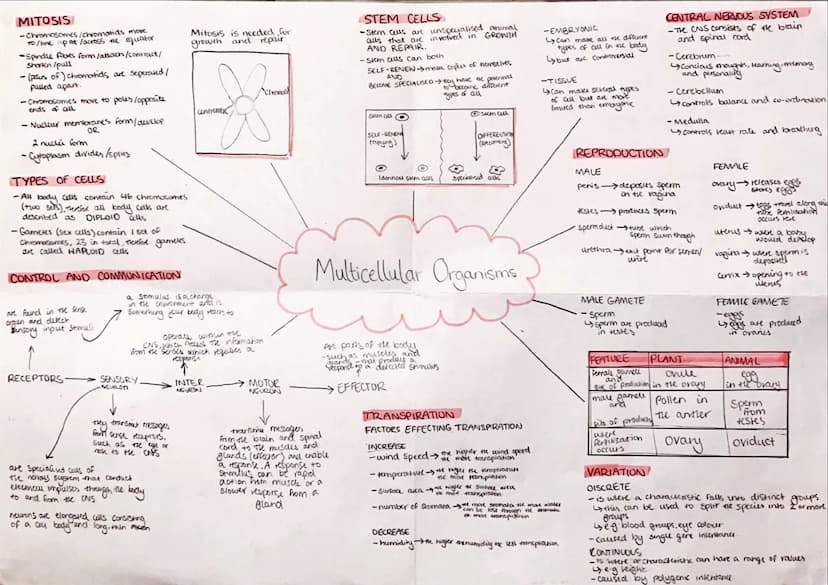 MITOSIS
- Chromosomes/chromatids move to/line up at/across the equator
- Spindle fibres form/attach/contract/shorten/pull
- (pairs of) chromatids are separated/pulled apart.
- Chromosomes move to poles/opposite ends of cell.
- Nuclear membranes form/develop
OR
2 nuclei form
- Cytoplasm divides/splits
Mitosis is needed for
growth and repair
chromatid
centromere
TYPES OF CELLS
- All body cells contain 46 chromosomes
(two sets), all body cells are
described as DIPLOID cells
- Gametes (sex cells) contain 1 set of
chromosomes, 23 in total, gametes
are called HAPLOID cells
STEM CELLS
- Stem cells are unspecialised animal
cells that are involved in GROWTH
AND REPAIR.
- Stem cells can both
SELF-RENEW → make copies of themselves
AND
BECOME SPECIALISED → they have the potential
to become different
types of cells
Stem cell
Stem cell
SELF-RENEW
(copying)
Identical stem cells
Specialised cells
- EMBRYONIC
↳ can make all the different
types of cell in the body
↳ but are controversial
- TISSUE
↳ Can make several types
of cell but are more
limited than embryonic
CENTRAL NERVOUS SYSTEM
- The CNS consists of the brain
and spinal cord
- Cerebrum
↳ concious thoughts, learning, memory
and personality
- Cerebellum
↳ controls balance and co-ordination
- Medulla
↳ controls heart rate and breathing
REPRODUCTION
MALE
penis → deposits sperm
in the vagina
testes → produces sperm
spermduct → tube which
sperm swim though
urethra → exit point for semen/
urine
FEMALE
ovary → releases eggs
stores eggs
oviduct → eggs travel along
fertilisation
occurs here
uterus → were a baby
would develop
vagina → were sperm is
deposited
cervix → opening to the
uterus
MALE GAMETE
- sperm
↳ sperm are produced
in testes
FEMALE GAMETE
- eggs
↳ eggs are produced
in ovaries
Multicellular Organisms
CONTROL AND COMMUNICATION
are found in the sense
organ and detect
sensory input stimuli
a stimulus is a change
in the environment and is
something your body reacts to
operate within the
CNS, which process the information
from the senses which requires a
response
Are parts of the body
- such as muscles and
glands - that produce a
respond to a detected stimulus
RECEPTORS → SENSORY NEURON → INTER NEURON → MOTOR NEURON → EFFECTOR
they transmit messages
from sense receptors,
such as the eye or
nose to the CNS
transmit messages
from the brain and spinal
cord to the muscles and
glands (effector) and enable
a response. A response to
stimulus can be rapid
action from muscle or a
slower response from a
gland
are specialised cells of
the nervous system that conduct
electrical impulses through the body
to and from the CNS
Neurons are elongated cells consisting
of a cell body and long, thin
TRANSPIRATION
FACTORS EFFECTING TRANSPIRATION
INCREASE
- wind speed → the higher the wind speed
the more transpiration
- temperature → the higher the temperature
the more transpiration
- surface area → the higher the surface area
the more transpiration
- number of stomata → the more stomata the more water
can be lost through the stomata
so more transpiration
DECREASE
- humidity → the higher the humidity the less transpiration
FEATURE PLANT ANIMAL
female gamete and site of production
Ovule in the ovary
egg in the ovary
male gamete and site of production
Pollen in the anther
Sperm from testes
were fertilisation occurs
Ovary
Oviduct
VARIATION
DISCRETE
- is were a characteristic falls into distinct groups
↳ this can be used to split the species into 2 or more
groups
↳ e.g blood groups, eye colour
- caused by single gene inheritance
CONTINUOUS
- is were a characteristic can have a range of values
↳ e.g height
- caused by polygenic inheritance